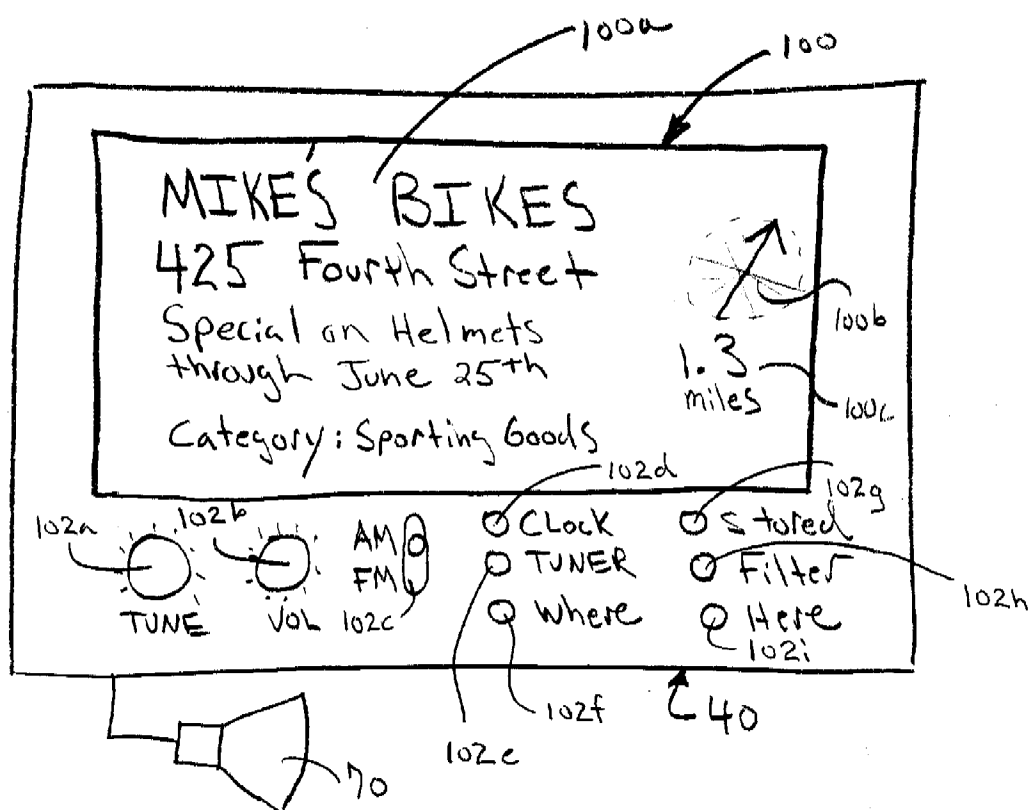 100a
100
MIKE'S BIKES
425 Fourth Street
Special on Helmets
through June 25th
Category: Sporting Goods
100b
1.3
miles
100c
102d
102g
102a
102b
AM
FM
102c
CLOCK
TUNER
Where
Stored
Filter
Here
102h
TUNE
VOL
102i
102f
40
102e
70